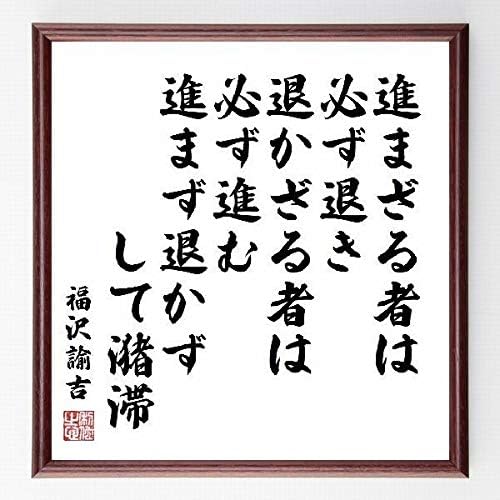 進まざる者は
必ず退き
退かざる者は
必ず進む
進まず退かず
して瀦滞
福沢諭吉